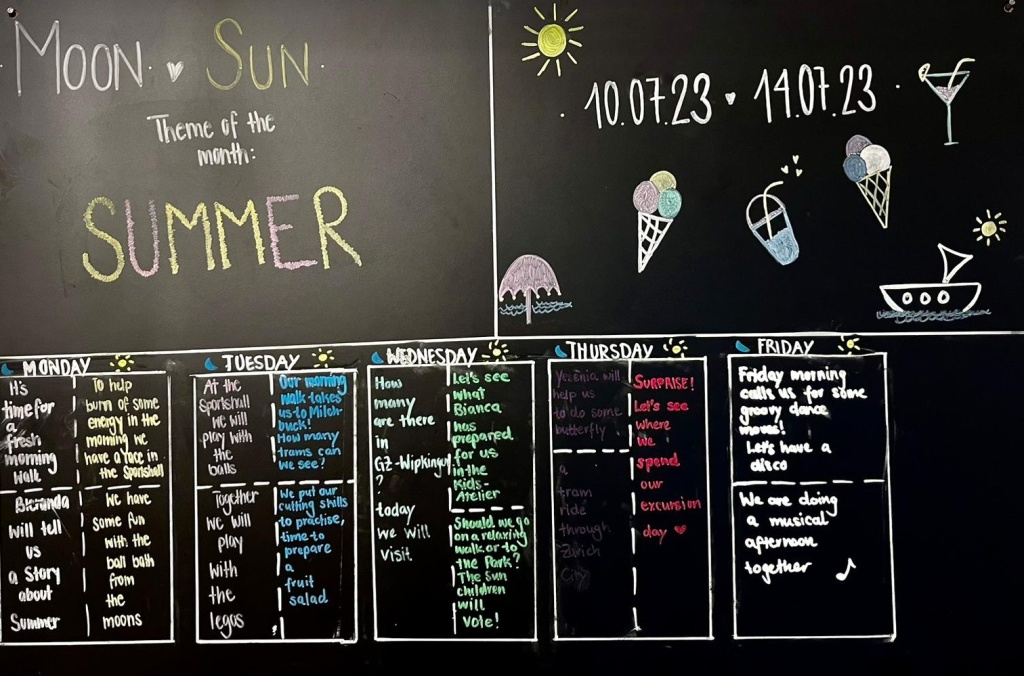 MOON ♥ SUN
Theme of the
month:
SUMMER
10.07.23 ♥ 14.07.23
MONDAY
It's
time for
a
fresh
morning
walk
To help
burn of some
energy in the
morning we
have a race in
the Sportshall
Bleranda
will tell
us
a Story
about
Summer
We have
some fun
with the
ball bath
from
the
moons
TUESDAY
At the
Sportshall
we will
play with
the
balls
Our morning
walk takes
us to Milch-
buck!
How many
trams can
we see!
Together
we will
play
with
the
legos
We put our
cutting skills
to practise,
time to
prepare
a
fruit
salad
WEDNESDAY
How
many
are there
in
GZ-Wipkingen
?
today
we will
visit
Let's see
what
Bianca
has
prepared
for us
in the
Kids-
Atelier
Should we go
on a relaxing
walk or to
the Park?
The Sun
children
will
vote!
THURSDAY
Yesenia will
help us
to do some
butterfly
a
tram
ride
through
Zürich
City
SURPRISE!
Let's see
where
we
spend
our
excursion
day ♥
FRIDAY
Friday morning
calls us for some
groovy dance
moves!
Let's have a
disco
We are doing
a musical
afternoon
together ♪